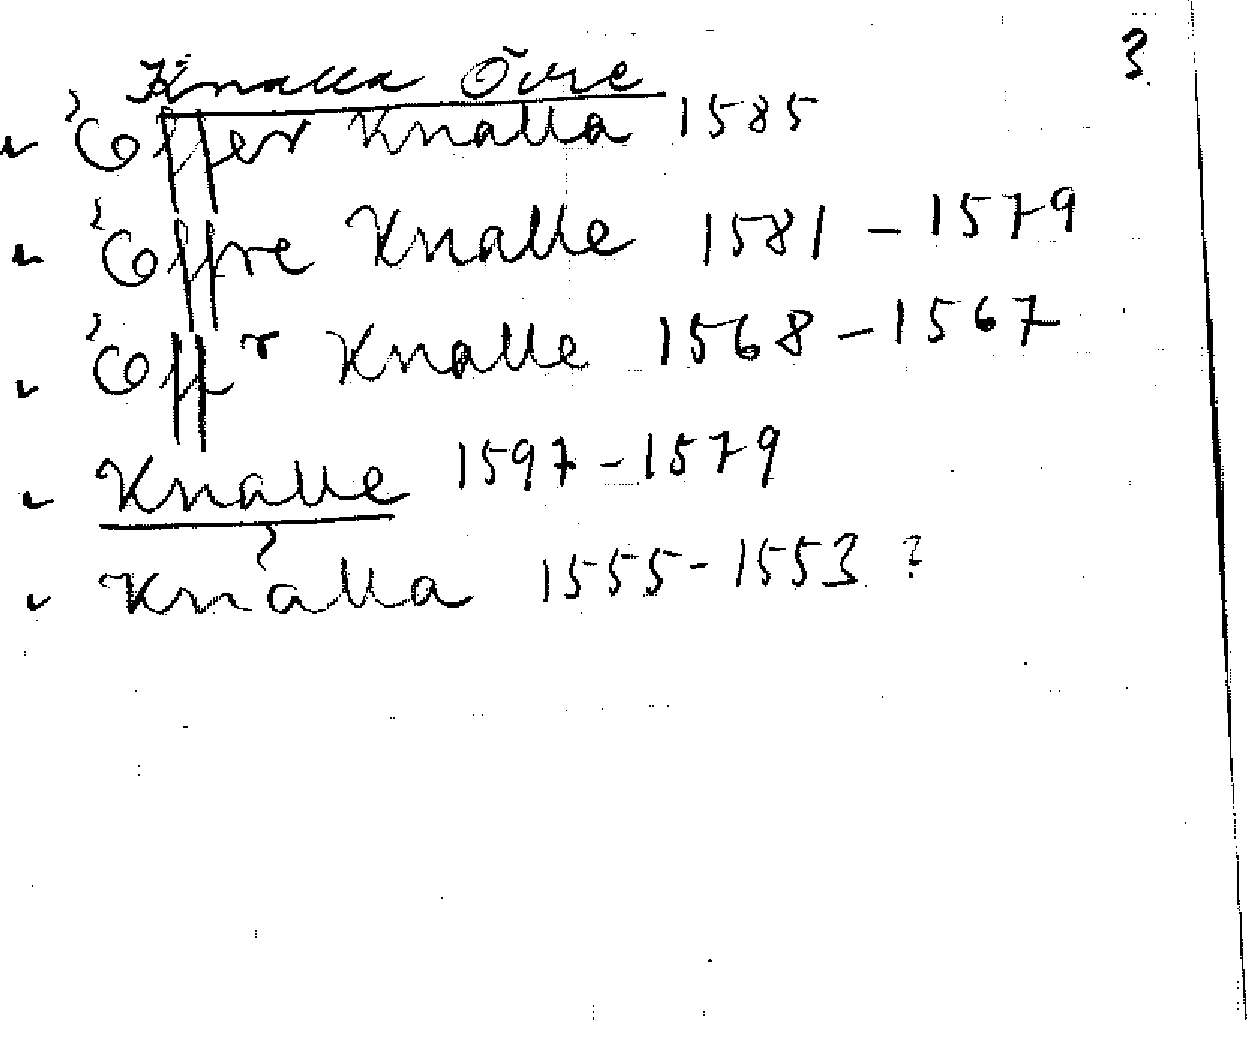 3
Knalla Övre
Öffer Knalla 1585
Öffre Knalle 1581 – 1579
Öff r Knalle 1568 – 1567
Knalle 1597 – 1579
Knalla 1555 – 1553 ?